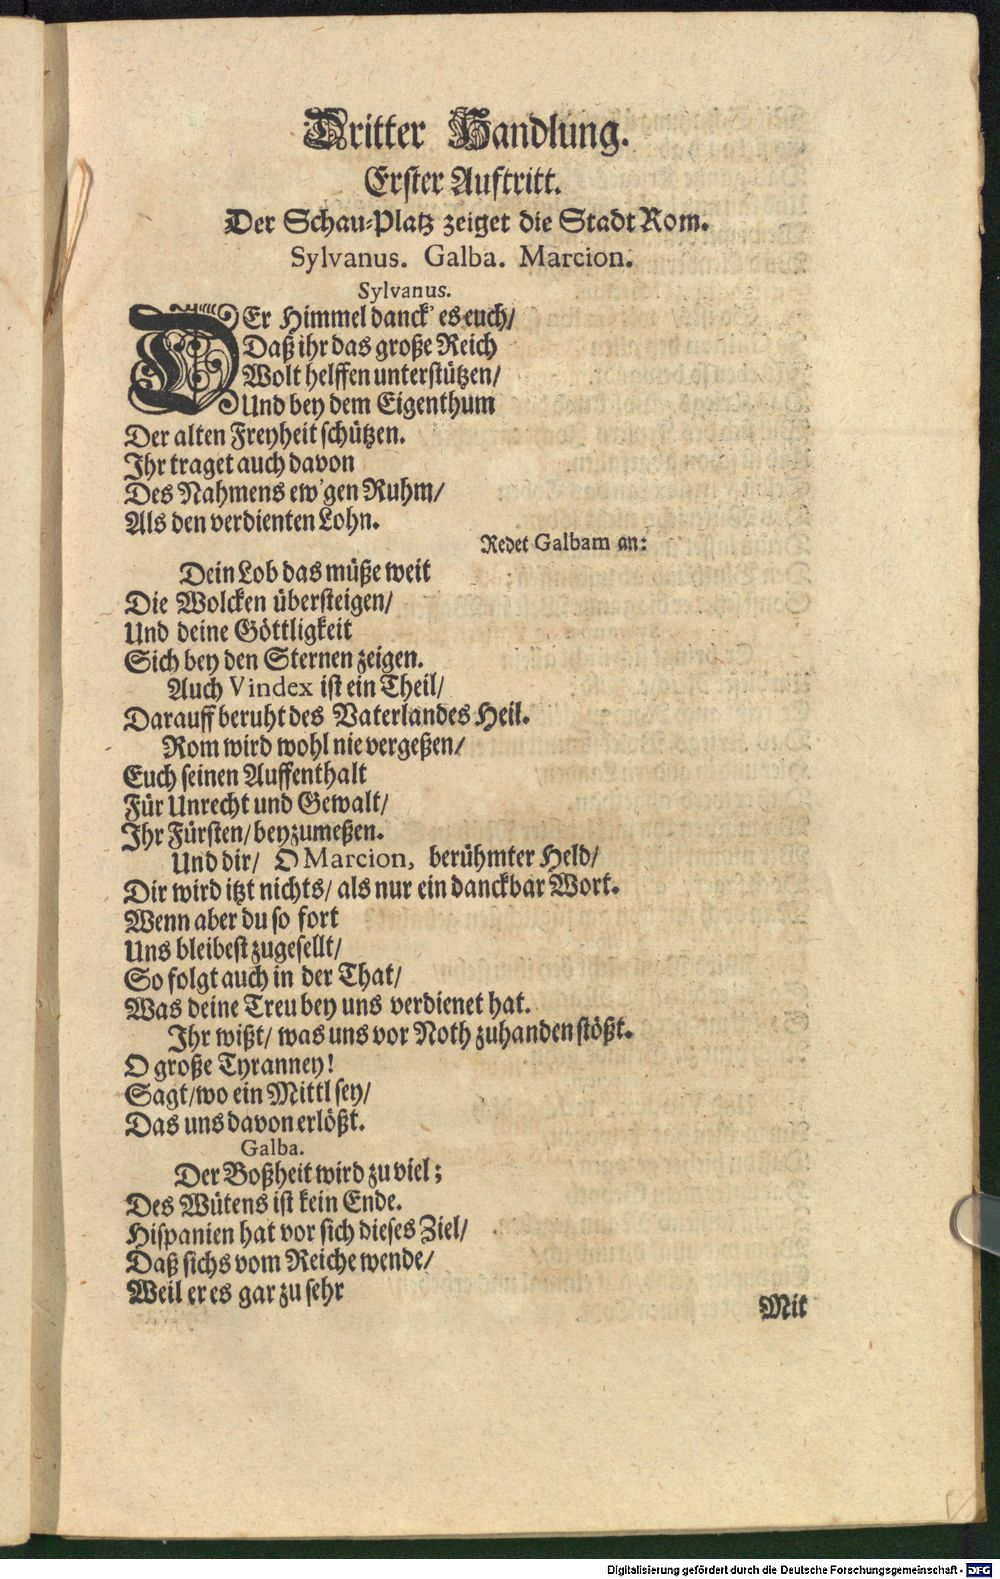 Dritter Handlung.
Erster Auftritt.
Der Schau-Platz zeiget die Stadt Rom.
Sylvanus. Galba. Marcion.
Sylvanus.
DEr Himmel danck' es euch/
Daß ihr das große Reich
Wolt helffen unterstützen/
Und bey dem Eigenthum
Der alten Freyheit schützen.
Ihr traget auch davon
Des Nahmens ew'gen Ruhm/
Als den verdienten Lohn.
Redet Galbam an:
Dein Lob das müße weit
Die Wolcken übersteigen/
Und deine Göttligkeit
Sich bey den Sternen zeigen.
Auch Vindex ist ein Theil/
Darauff beruht des Vaterlandes Heil.
Rom wird wohl nie vergeßen/
Euch seinen Auffenthalt
Für Unrecht und Gewalt/
Ihr Fürsten/ beyzumeßen.
Und dir/ O Marcion, berühmter Held/
Dir wird itzt nichts/ als nur ein danckbar Wort.
Wenn aber du so fort
Uns bleibest zugesellt/
So folgt auch in der That/
Was deine Treu bey uns verdienet hat.
Ihr wißt/ was uns vor Noth zuhanden stößt.
O große Tyranney!
Sagt/ wo ein Mittl sey/
Das uns davon erlößt.
Galba.
Der Boßheit wird zu viel;
Des Wütens ist kein Ende.
Hispanien hat vor sich dieses Ziel/
Daß sichs vom Reiche wende/
Weil er es gar zu sehr
Mit
Digitalisierung gefördert durch die Deutsche Forschungsgemeinschaft - DFG